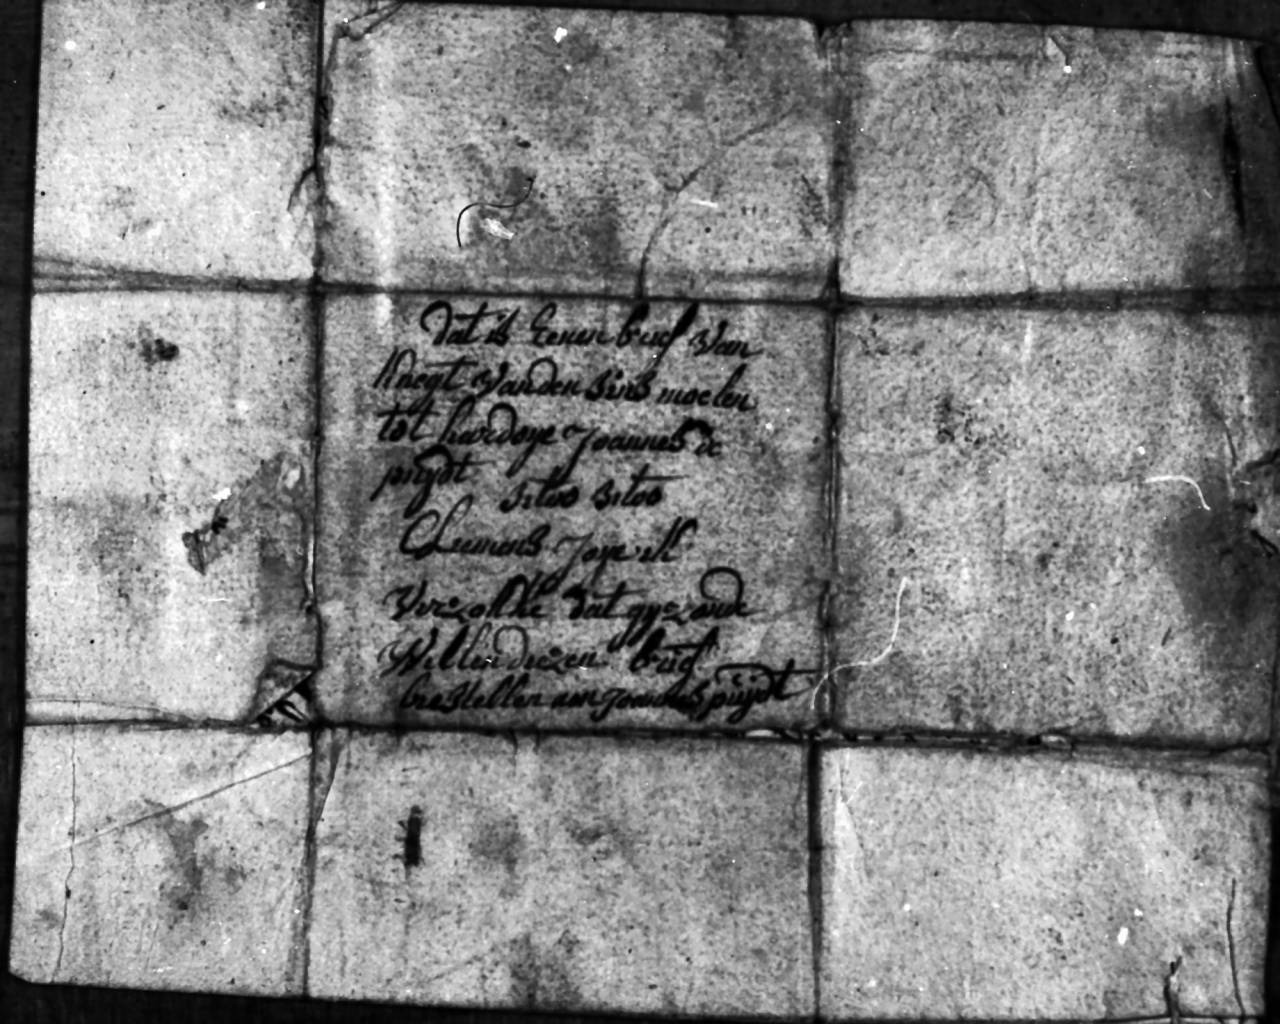 dat is Eenen brief van
knegt vanden sins moelen
tot hardoye joannes de
puijdt sito sito
Clemens joye ik
verzoeke dat gy zoude
Willen dezen brief
bestellen aen joannes puijdt